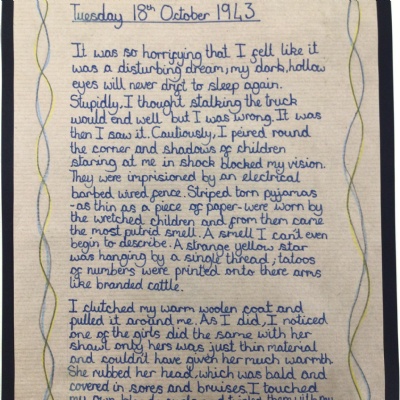 Tuesday 18th October 1943
It was so horrifying that I fell like it
was a disturbing dream; my dark, hollow
eyes will never drift to sleep again.
Stupidly, I thought stalking the truck
would end well but I was wrong. It was
then I saw it. Cautiously, I peired round
the corner and shadows of children
staring at me in shock blocked my vision.
They were imprisioned by an electrical
barbed wired fence. Striped torn pyjamas
-as thin as a piece of paper- were worn by
the wretched children and from them came
the most putrid smell. A smell I can't even
begin to describe. A strange yellow star
was hanging by a single thread; tatoos
of numbers were printed onto there arms
like branded cattle.
I clutched my warm woolen coat and
pulled it around me. As I did, I noticed
one of the girls did the same with her
shawl only hers was just thin material
and couldn't have given her much warmth.
She rubbed her head, which was bald and
covered in sores and bruises. I touched
my own